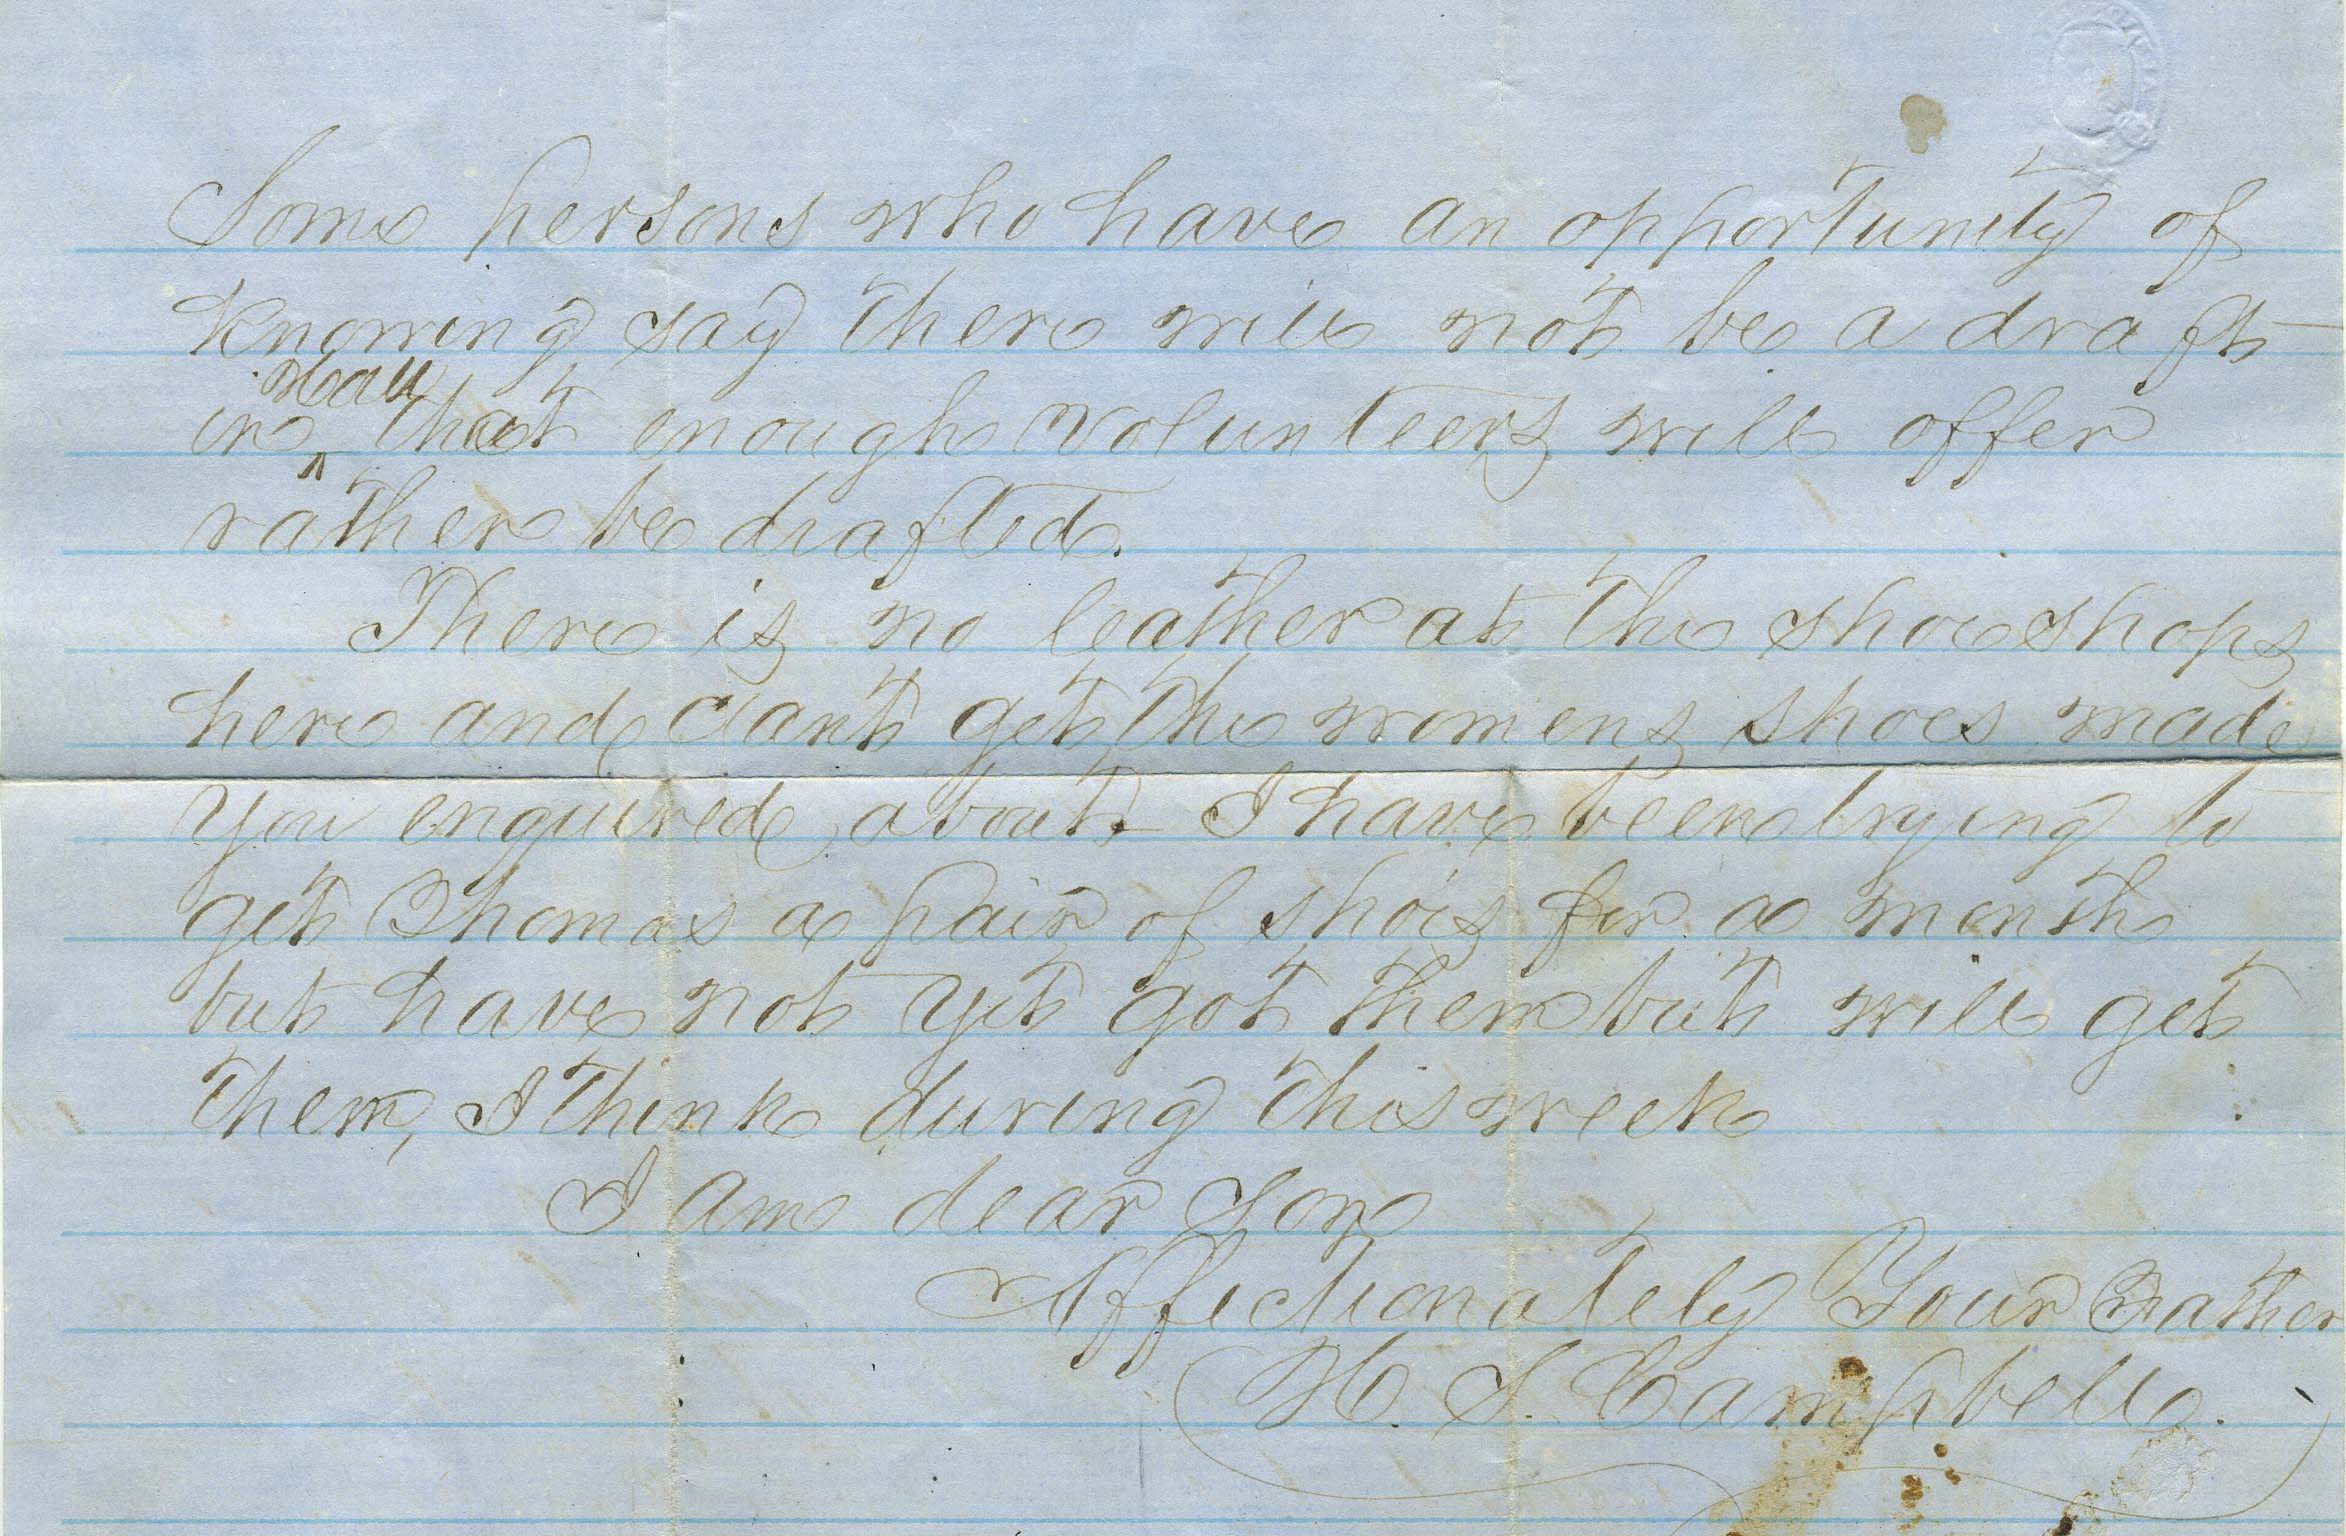 Some persons who have an opportunity of
knowing say there will not be a draft
in that enough volunteers will offer
rather be drafted.
There is no leather at the shoe shops
here and cant get the womens shoes made
you enquired about. I have been trying to
get Thomas a pair of shoes for a month
but have not yet got them but will get
them, I think during this week
I am dear Son
Affectionately Your Father
H. S. Campbell.